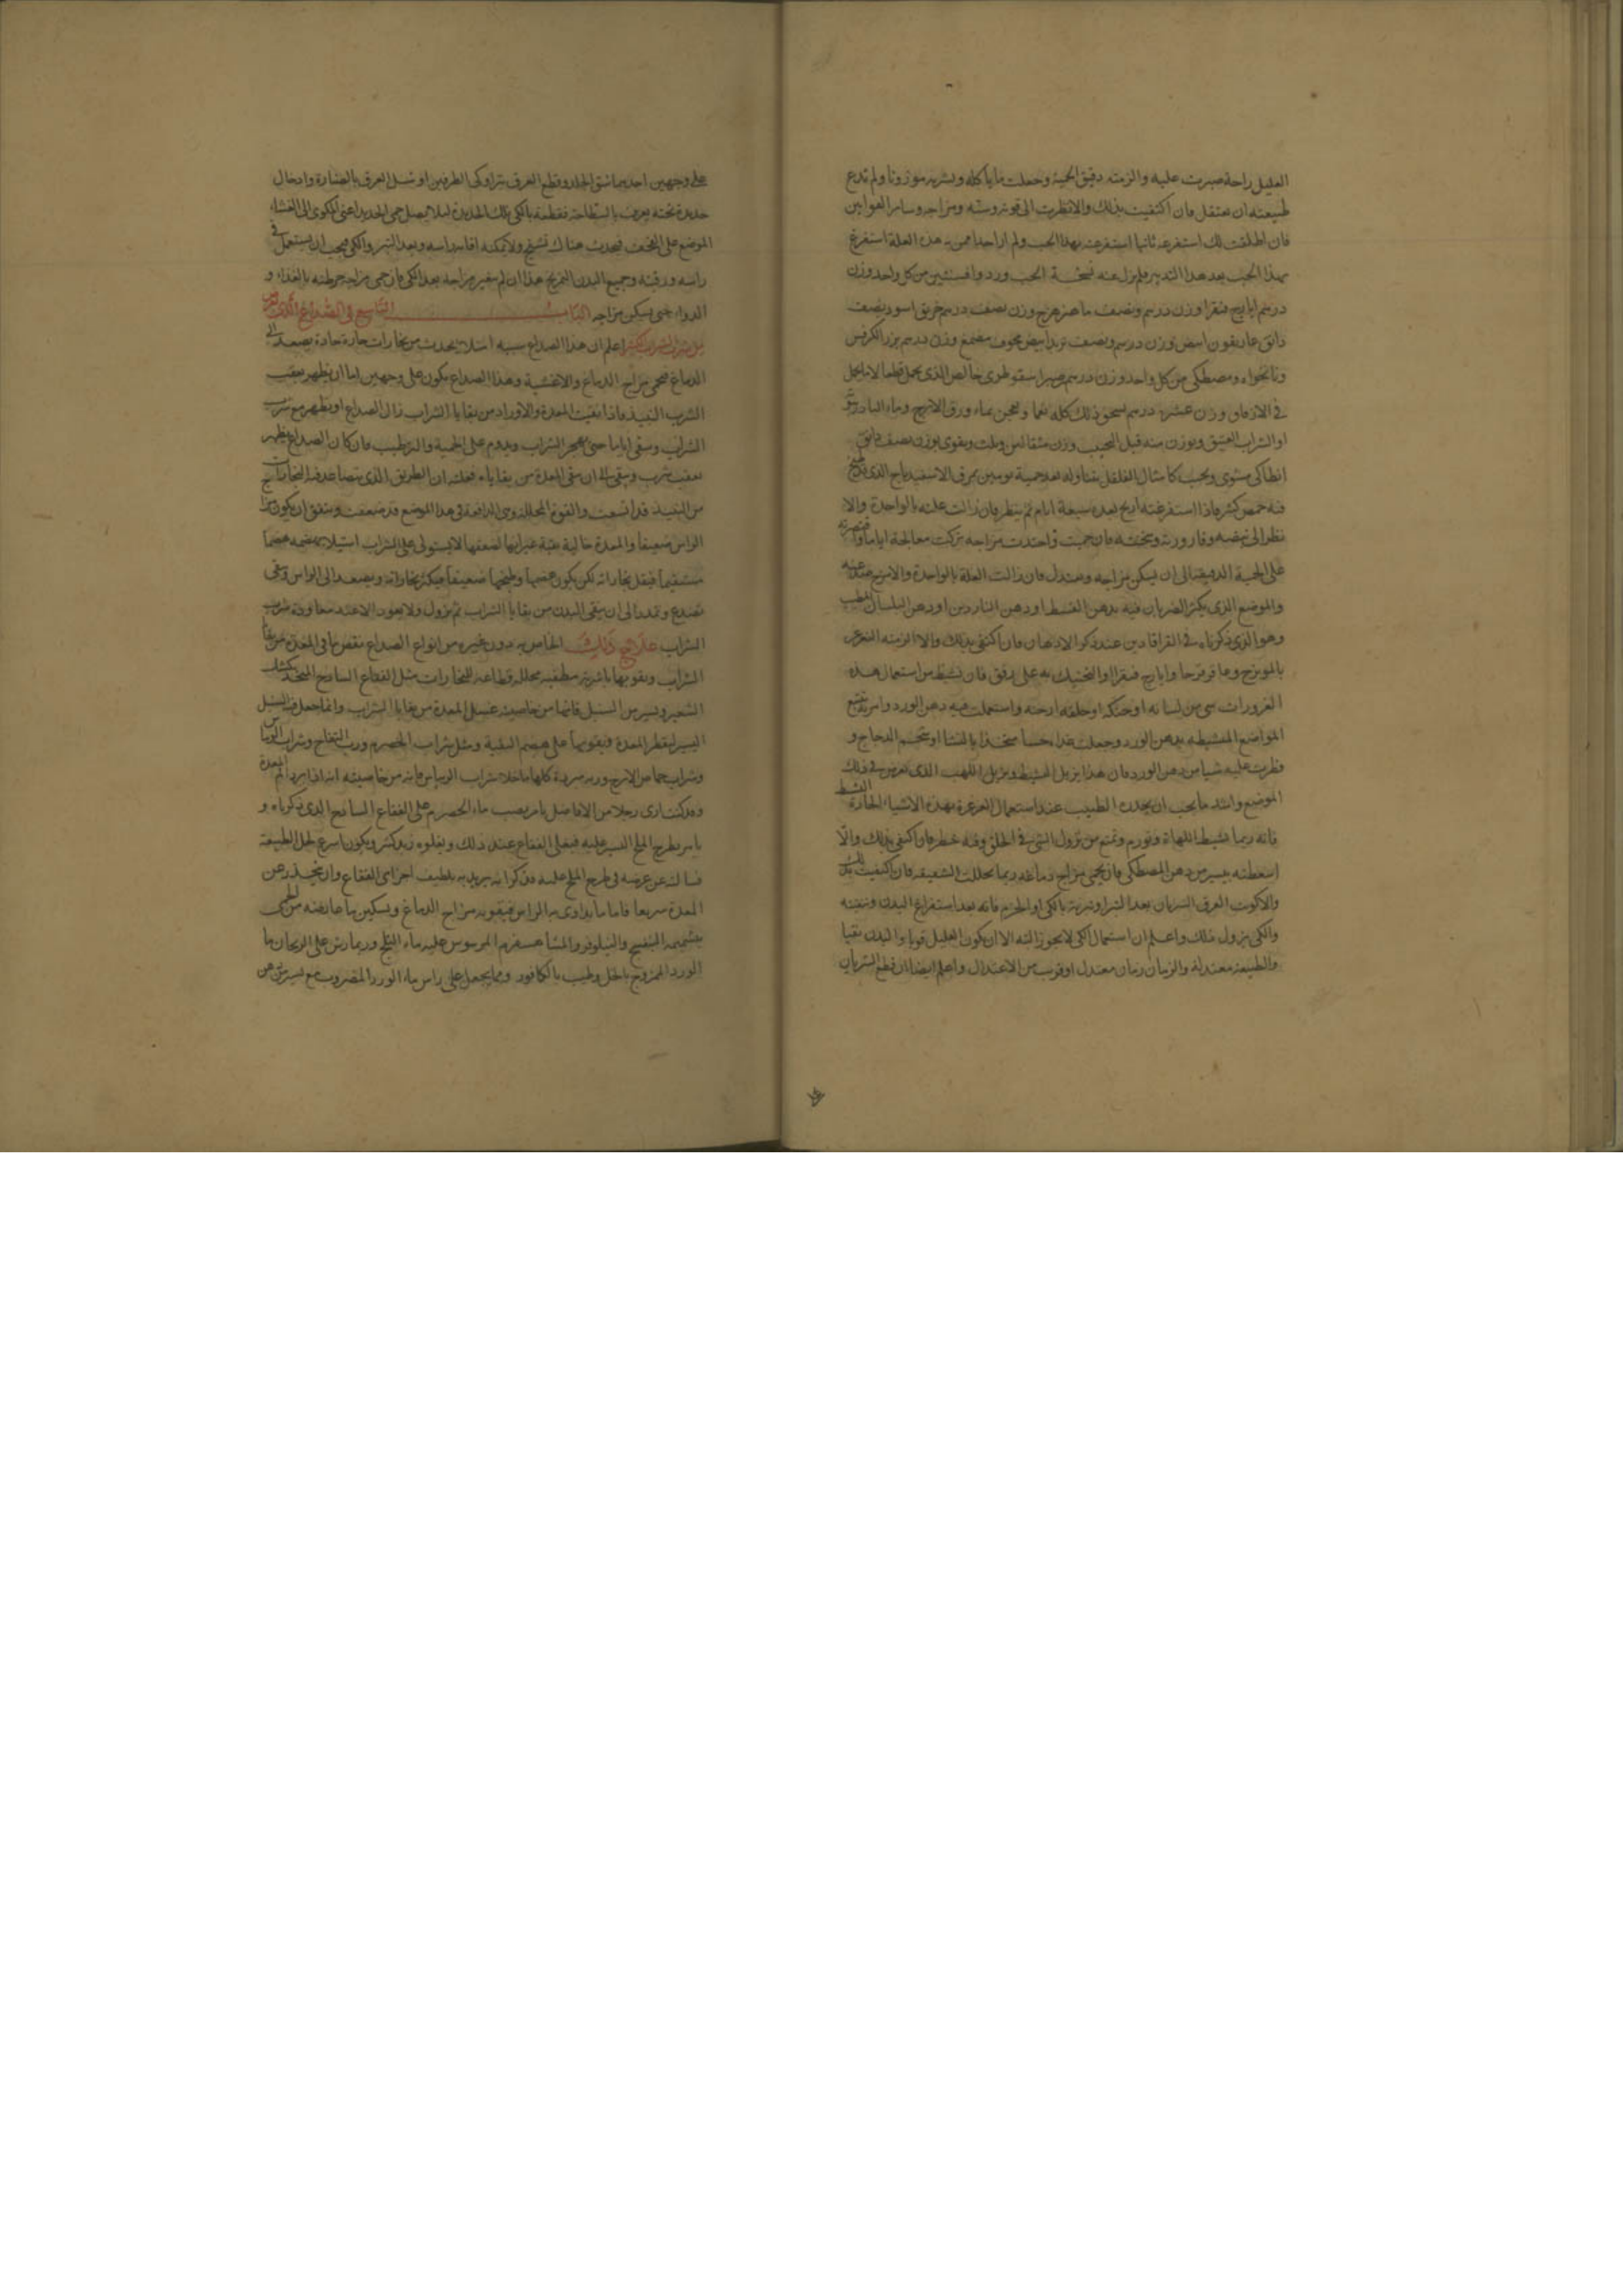 العليل راحة صبرت عليه والزمته دقيق الحمية وجعلت ما ياكله ويشربه موزونا ولم تدع
طبيعته ان تعتقل فان اكتفيت بذلك والا نظرت الى قوته وسنه ومزاجه وساير القوانين
فان اطلقت لك استفرغته ثانيا استفرغته بهذا الحب ولم ار احدا ممن به هذه العلة استفرغ
بهذا الحب بعد هذا التدبير فلم يزل عنه نسخة الحب ورد وافسنتين من كل واحد وزن
درهم ايارج فيقرا وزن درهم ونصف ماهيزهرج وزن نصف درهم خربق اسود نصف
دانق غاريقون ابيض وزن درهم ونصف تربد ابيض مجوف مصمغ وزن درهم بزر الكرفس
ونانخواه ومصطكى من كل واحد وزن درهم صبر اسقوطرى خالص الذى
وزن عشرة درهم يسحق ذلك كله نعما ويعجن بماء ورق الاترج وماء
او الشراب العتيق ويوزن منه قبل التحبيب وزن مثقالين وثلث ويقوى بوزن نصف دانق
انطاكى مشوى ويحبب كامثال الفلفل يتناوله بعد حمية يومين بمرق الاسفيدباج الذى
فيه حمص كثير فاذا استفرغته اريح بعده سبعة ايام ثم ينظر فان زالت علته بالواحدة والا
نظر الى نبضه وقارورته وسحنته فان حميت واحتدت مزاجه تركت معالجته اياما
على الحمية الدقيقة الى ان يسكن مزاجه ويعتدل فان زالت العلة بالواحدة والا
والموضع الذى يكثر الضربان فيه بدهن القسط او دهن الناردين او دهن البلسان
وهو الذى ذكرناه فى القراقادين عند ذكر الادهان فان اكتفى بذلك والا الزمته التغرغر
بالمويزج وعاقرقرحا وايارج فيقرا والتحنيك به على رفق فان نشط من استعمال هذه
الغرورات شى من لسانه او حنكه او حلقه ارحته واستعملت فيه دهن الورد
المواضع المنشيطه بدهن الورد وجعلت غذاه حسا متخذا بالنشا او شحم الدجاج و
قطرت عليه شيا من دهن الورد فان هذا يزيل التشيط ويزيل اللهب الذى يعرض فى ذلك
الموضع واشد ما يجب ان يحذره الطبيب عند استعمال الغرغرة بهذه الاشياء الحارة
فانه ربما تشيط اللهاة وتورم وتمنع من نزول الشى فى الحلق وفيه خطر فان اكتفى بذلك والا
اسعطته بيسير من دهن المصطكى فان يحمى مزاج دماغه ربما تحللت الشقيقه فان اكتفيت
والا كويت العرق الشريان بعد البتر او تبرته بالكى او الحزم فانه بعد استفراغ البدن وتنقيته
والكى يزول ذلك واعلم ان استعمال الكى لا يجوز البته الا ان يكون العليل قويا والبدن نقيا
والطبيعة معتدلة والزمان زمان معتدل او قريب من الاعتدال واعلم ايضا ان قطع الشريان
على وجهين احدهما شق الجلد وقطع العرق بترا وكى الطرفين او نشل العرق بالصنارة وادخال
حديدة تحته يعرف بالسطاحة فقطعه بالكى بتلك الحديدة ليلا يصل حمى الحديد اعنى المكوى الى الغشاء
الموضع على القحف فيحدث هناك تشنج ولا يمكنه اقامة راسه وبعد البتر والكى فيجب ان يستعمل فى
راسه ورقبته وجميع البدن التمريخ هذا ان لم يتغير مزاجه بعد الكى فان حمى مزاجه رطبته بالغذاء و
الدواء حتى يسكن مزاجه الباب التاسع فى الصداع الذى
من شرب الشراب الكثير اعلم ان هذا الصداع سببه امتلا يحدث من بخارات حارة حادة يصعد الى
الدماغ فيحمى مزاج الدماغ والاغشية وهذا الصداع يكون على وجهين اما ان يظهر بعقب
الشرب النبيذ فاذا نقيت المعدة والاوراد من بقايا الشراب زال الصداع او يظهر مع شرب
الشراب وبقى اياما حتى يهجر الشراب ويدوم على الحمية والترطيب فان كان الصداع يظهر
بعقب شرب وبقى الى ان تنقى المعدة من بقاياه فعلته ان الطريق الذى يتصاعد فيه البخارات
من النبيذ قد اتسعت والقوة المحللة وى الدافعة فى هذا الموضع قد ضعفت ويتفق ان يكون مزاج
الراس ضعيفا والمعدة خالية نقية غير انها لضعفها لا يستولى على الشراب استيلا يهضمه هضما
مستقيما فيقل بخاراته لكن يكون هضمها وطبخها ضعيفا فيكثر بخاراته ويصعد الى الراس وبقى
تصدع وتمدد الى ان ينقى البدن من بقايا الشراب ثم يزول ولا يعود الا عند معاودة شرب
الشراب علاج ذلك الخاص به دون غيره من انواع الصداع نفض ما فى المعدة من بقايا
الشراب وتقويها باشربة مطفيه محللة قطاعة للبخارات مثل الفقاع الساذج المتخذ بكشك
الشعير ويسير من السنبل فانها من خاصيته غسل المعدة من بقايا الشراب وانما جعل فيه السنبل
اليسير لقطر المعدة وتقويها على هضم البقية ومثل شراب الحصرم ورب التفاح وشراب الريباس
وشراب حماض الاترج وربه مبردة كلها ما خلا شراب الريباس فانه من خاصيته انه اذا برد الم المعدة
وقد كنت ارى رجلا من الافاضل يامر بصب ماء الحصرم على الفقاع الساذج الذى ذكرناه و
يامر بطرح الملح اليسير عليه فيغلى الفقاع عند ذلك ويغلوه زبد كثير ويكون اسرع لحل الطبيعة
فسالته عن غرضه فى طرح الملح عليه فذكر انه يريد به تلطيف اجزاى الفقاع وان ينحدر عن
المعدة سريعا فاما ما يداوى به الراس فيقويه مزاج الدماغ وتسكين ما عارضه من الحمى
بتشميمه البنفسج والنيلوفر والشاهسفرم المرشوش عليه ماء الثلج وربما رش على الريحان ماء
الورد الممزوج بالخل وطيب بالكافور ومما يجعل على راس ماء الورد المضروب مع يسير من دهن